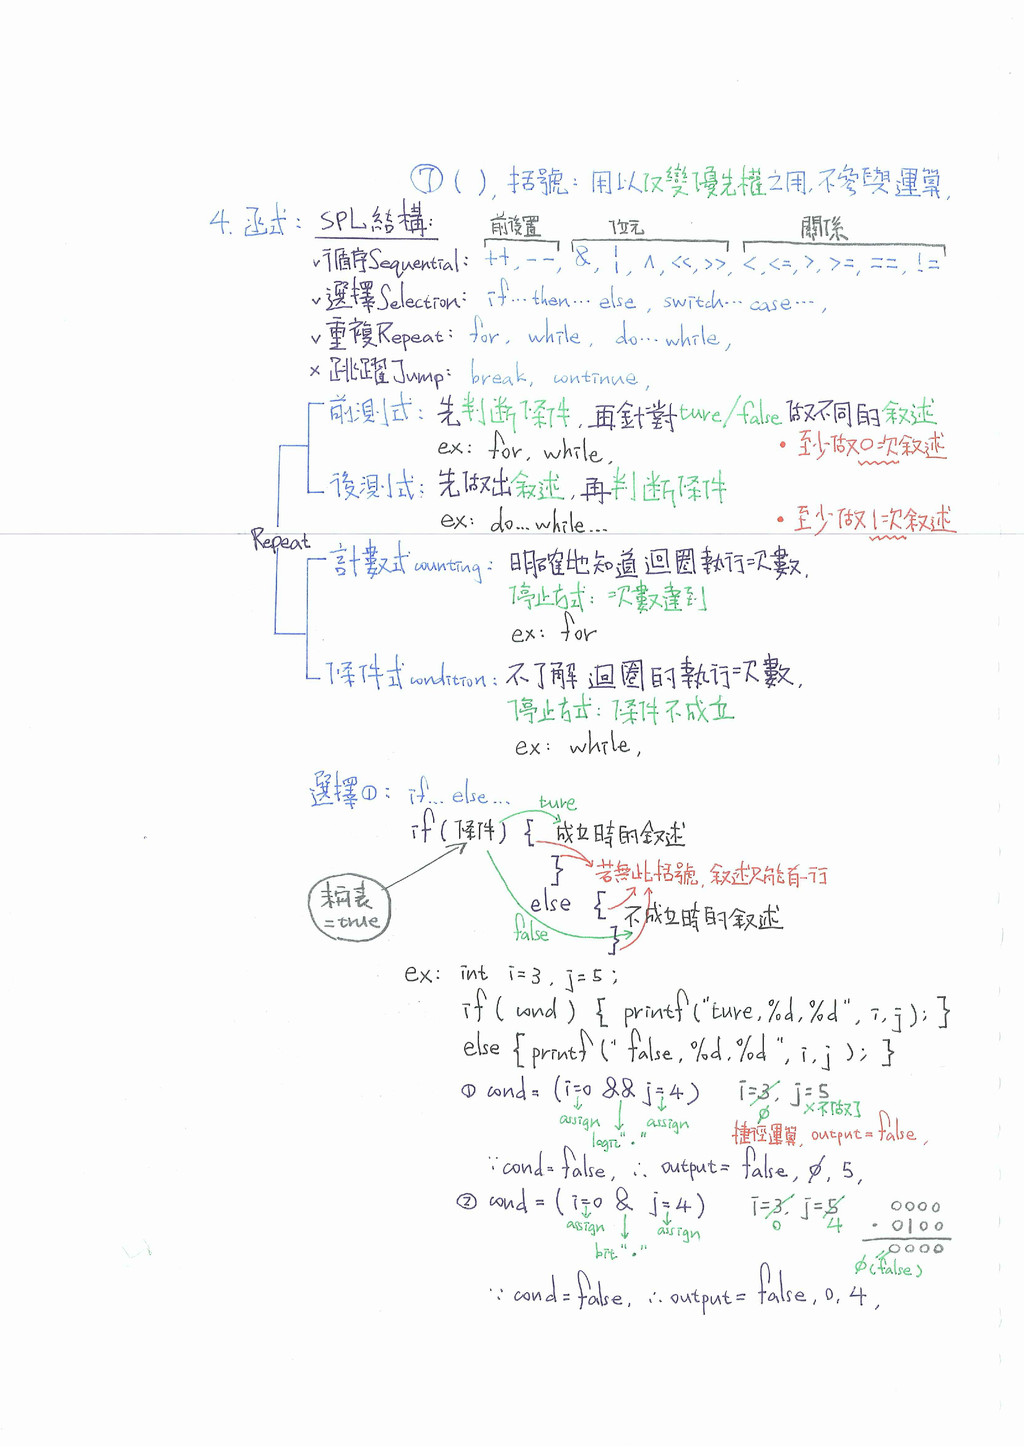 ⑦ ( ), 括號: 用以改變優先權之用, 不參與運算,
4. 函式: SPL結構: 前後置 位元 關係
v循序Sequential: ++, --, &, |, ^, <<, >>, <, <=, >, >=, ==, !=
v選擇Selection: if…then…else, switch…case…,
v重複Repeat: for, while, do…while,
×跳躍Jump: break, continue,
前測式: 先判斷條件, 再針對ture/false做不同的敘述
ex: for, while,
•至少做0次敘述
後測式: 先做出敘述, 再判斷條件
ex: do…while…
•至少做1次敘述
Repeat
計數式counting: 明確地知道迴圈執行次數,
停止方式: 次數達到
ex: for
條件式condition: 不了解迴圈的執行次數,
停止方式: 條件不成立
ex: while,
選擇①: if… else…
ture
if(條件) { 成立時的敘述
} 若無此括號, 敘述只能有一行
=true
else { 不成立時的敘述
false }
ex: int i=3, j=5;
if( cond ) { printf("ture,%d,%d", i,j); }
else { printf(" false,%d,%d ", i,j ); }
① cond= (i=0 && j=4) i=3, j=5
assign assign 0 ×不做了
logic"·" 捷徑運算, output=false,
∵cond=false, ∴ output= false, 0, 5,
② cond=( i=0 & j=4) i=3, j=5 0000
assign assign 0 4 · 0100
bit"·" 0000
0(false)
∵ cond=false, ∴output= false, 0, 4,